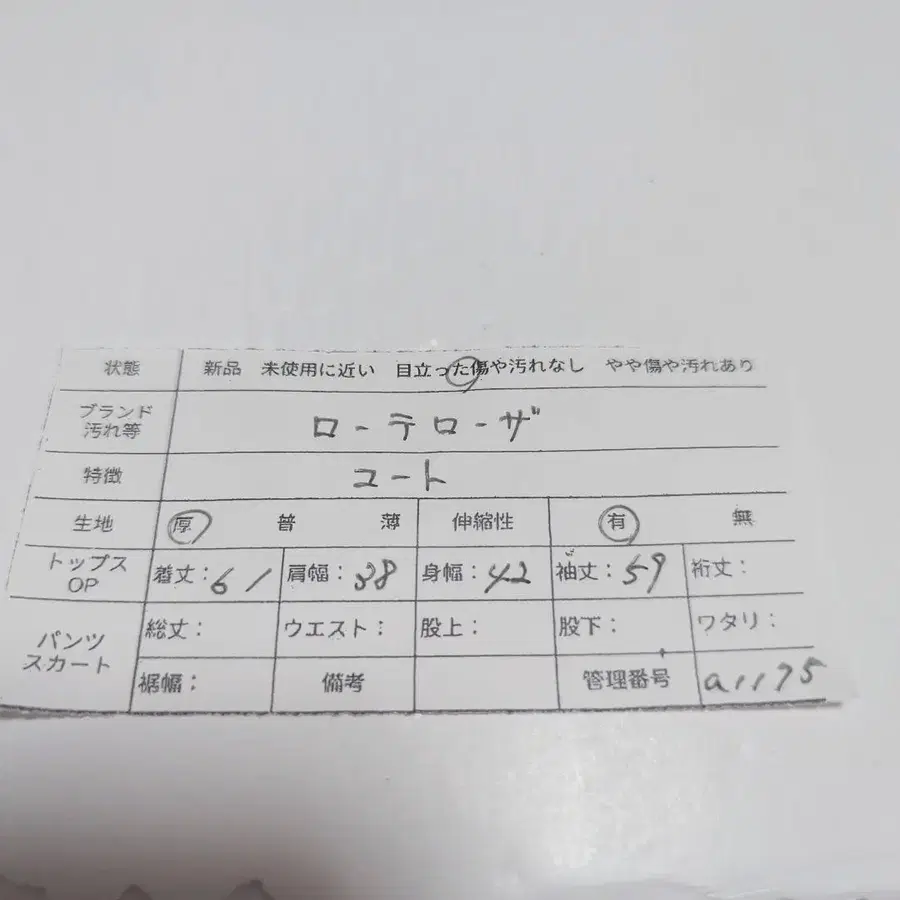 状態 新品 未使用に近い 目立った傷や汚れなし やや傷や汚れあり
ブランド
汚れ等 ローテローザ
特徴 コート
生地 厚 普 薄 伸縮性 有 無
トップス
OP 着丈：61 肩幅：38 身幅：42 袖丈：59 裄丈：
パンツ
スカート 総丈： ウエスト： 股上： 股下： ワタリ：
裾幅： 備考 管理番号 a1175